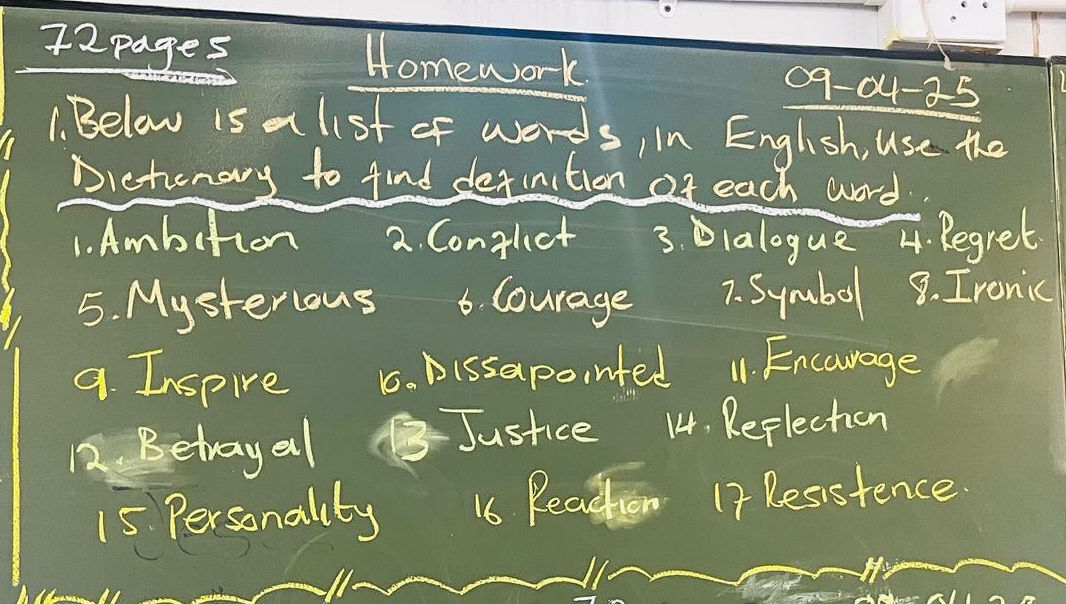 72 pages
Homework
09-04-25
1. Below is a list of words, in English, Use the
Dictionary to find definition of each word.
1. Ambition 2. Conflict 3. Dialogue 4. Regret.
5. Mysterious 6. Courage 7. Symbol 8. Ironic
9. Inspire 10. Dissapointed 11. Encourage
12. Betrayal 13 Justice 14. Reflection
15. Personality 16 Reaction 17 Resistence.